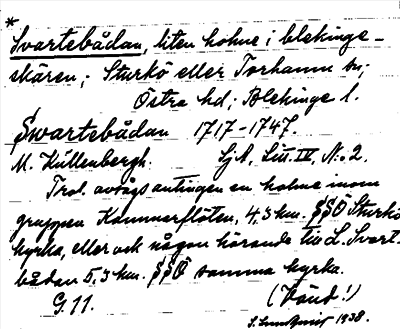 *
Svartebådan, liten holme i blekinge-
skären; Sturkö eller Torhamn sn;
Östra hd; Blekinge l.
Swartebådan 1717-1747.
M. Kullenbergh. Sjk. Litt. IV, No 2.
Trol. avsågs antingen en holme inom
gruppen Kummerflöten, 4,3 km. SSO Sturkö
kyrka, eller ock någon hörande till L. Svart-
bådan 5,3 km. SSO samma kyrka.
G. 11. (Känd!)
1938.